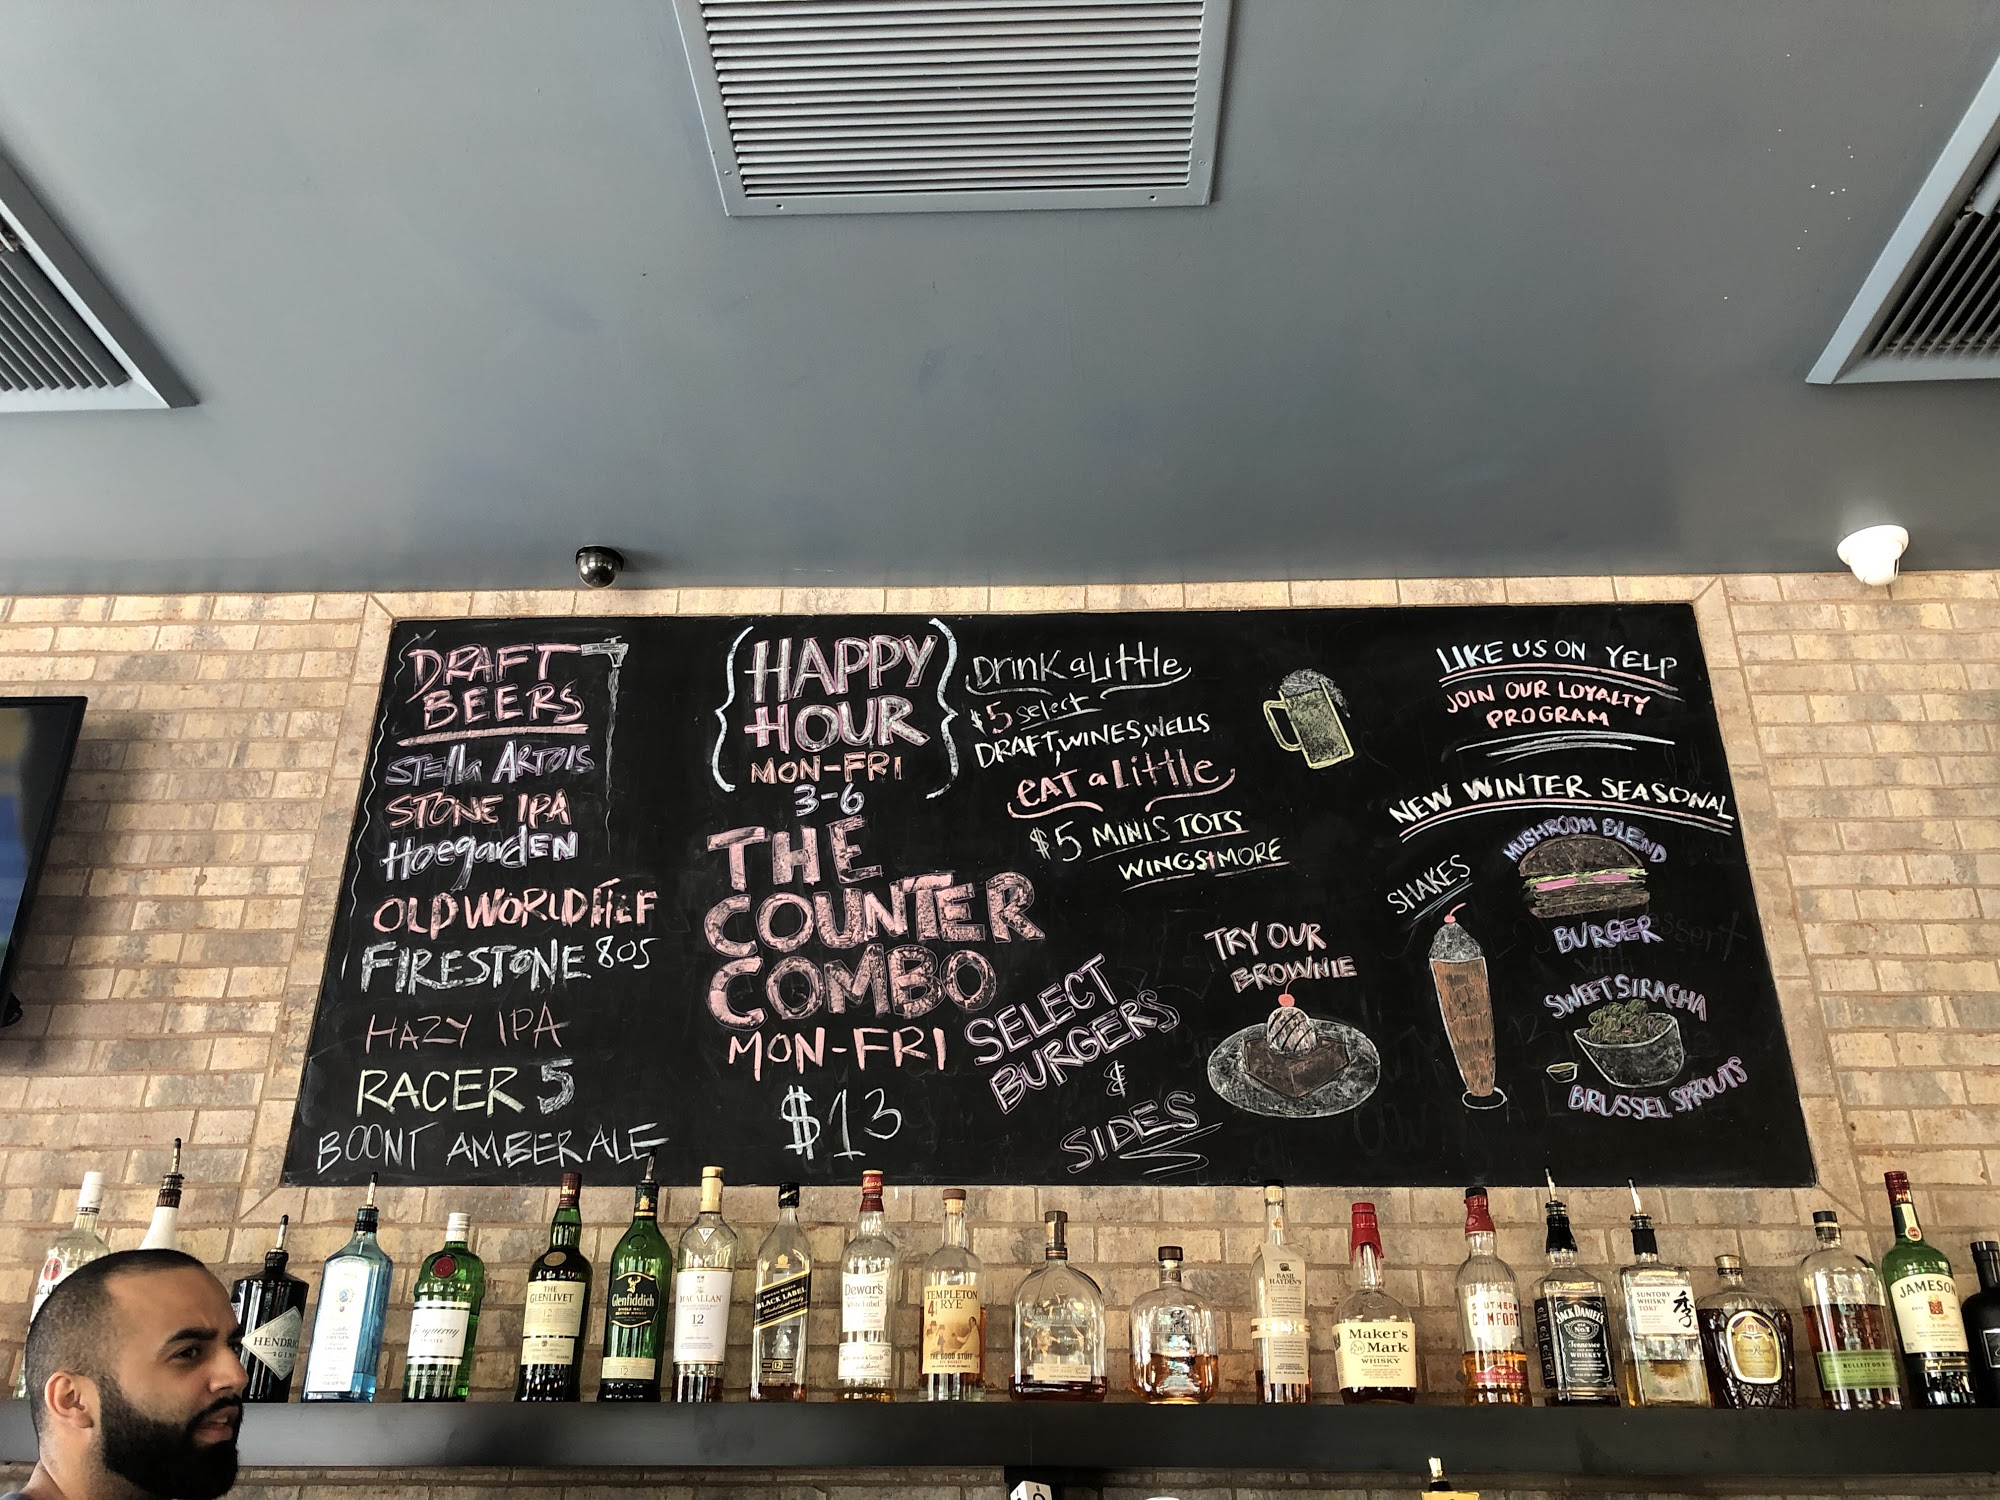 DRAFT
BEERS
Stella ARTOIS
STONE IPA
HoegardEN
OLD WORLD HEF
FIRESTONE 805
HAZY IPA
RACER 5
BOONT AMBER ALE
HAPPY
HOUR
MON-FRI
3-6
THE
COUNTER
COMBO
MON-FRI
$13
DrinK a Little
$5 select
DRAFT, WINES, WELLS
EAT a Little
$5 MINIS TOTS
WINGS+MORE
SELECT
BURGERS
&
SIDES
TRY OUR
BROWNIE
LIKE US ON YELP
JOIN OUR LOYALTY
PROGRAM
NEW WINTER SEASONAL
SHAKES
MUSHROOM BLEND
BURGER
SWEET SIRACHA
BRUSSEL SPROUTS
HENDRI
GIN
Tanqueray
LONDON DRY GIN
THE
GLENLIVET
12
Glenfiddich
12
MACALLAN
12
BLACK LABEL
12
Dewar's
White Label
TEMPLETON
4 RYE
THE GOOD STUFF
BASIL
HAYDEN'S
Maker's
Mark
WHISKY
SOUTHERN
COMFORT
JACK DANIEL'S
No.7
Tennessee
WHISKEY
SUNTORY
WHISKY
TOKI
季
Crown Royal
BULLEIT RYE
JAMESON